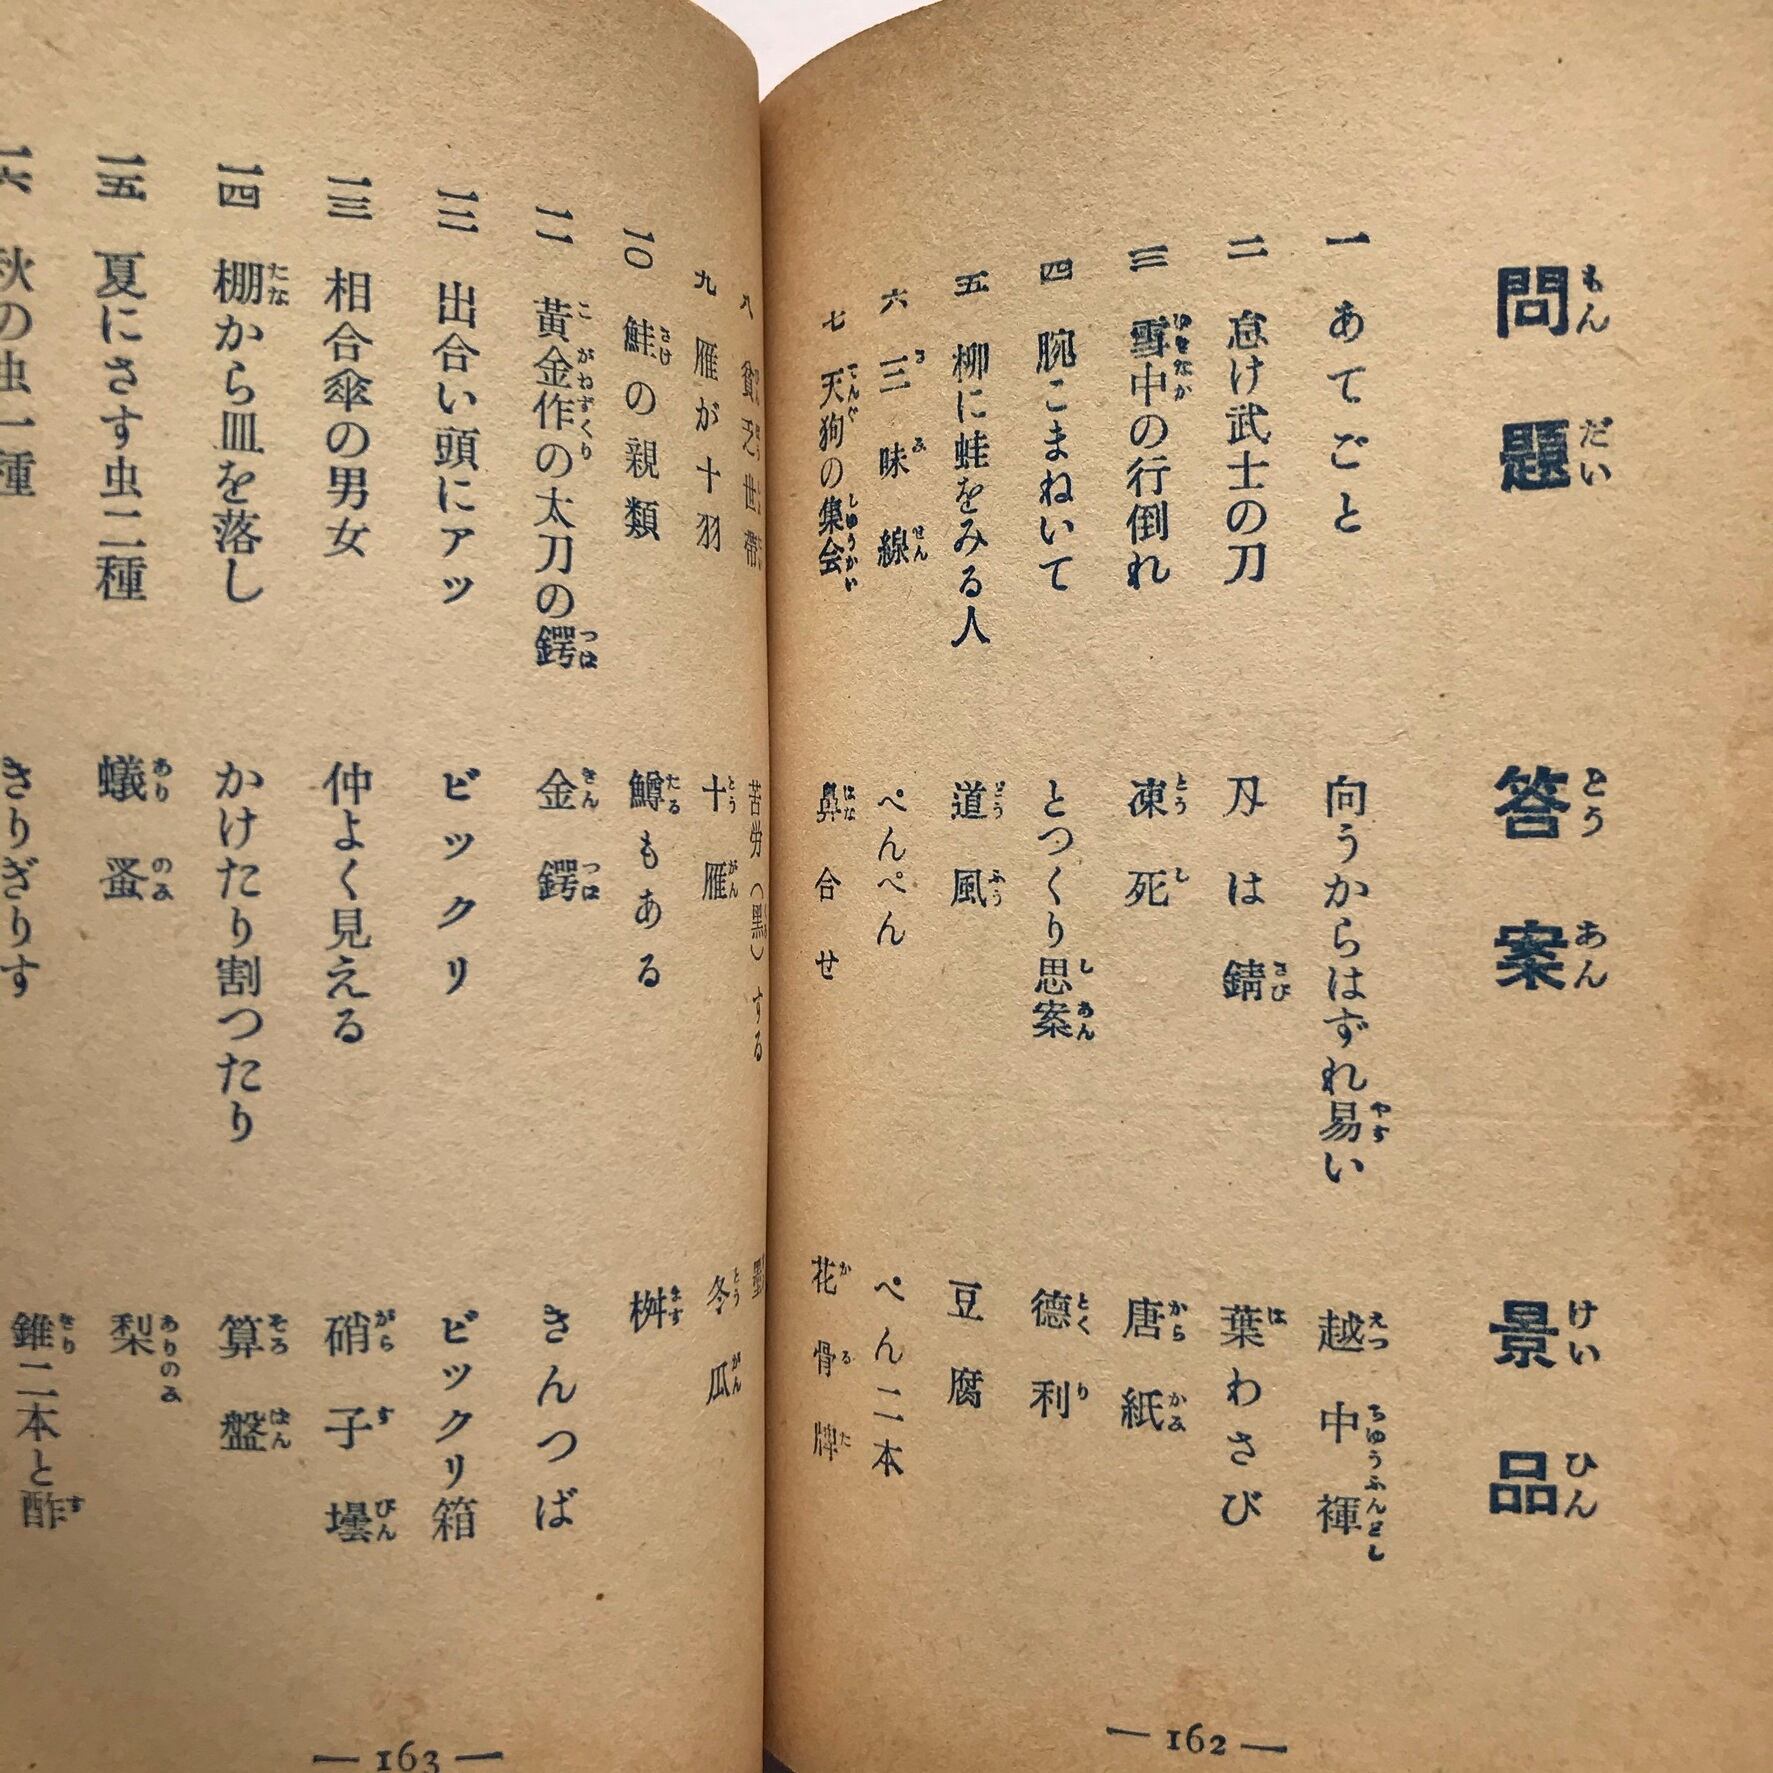 問題 答案 景品
一 あてごと 向うからはずれ易い 越中褌
二 怠け武士の刀 刄は錆 葉わさび
三 雪中の行倒れ 凍死 唐紙
四 腕こまねいて とつくり思案 徳利
五 柳に蛙をみる人 道風 豆腐
六 三味線 ぺんぺん ぺん二本
七 天狗の集会 鼻合せ 花骨牌
— 162 —
八 貧乏世帯 苦労(黒)する 墨
九 雁が十羽 十雁 冬瓜
一〇 鮭の親類 鱒もある 桝
一一 黃金作の太刀の鍔 金鍔 きんつば
一二 出合い頭にアッ ビックリ ビックリ箱
一三 相合傘の男女 仲よく見える 硝子壜
一四 棚から皿を落し かけたり割つたり 算盤
一五 夏にさす虫二種 蟻蚤 梨
一六 秋の虫一種 きりぎりす 錐二本と酢
— 163 —